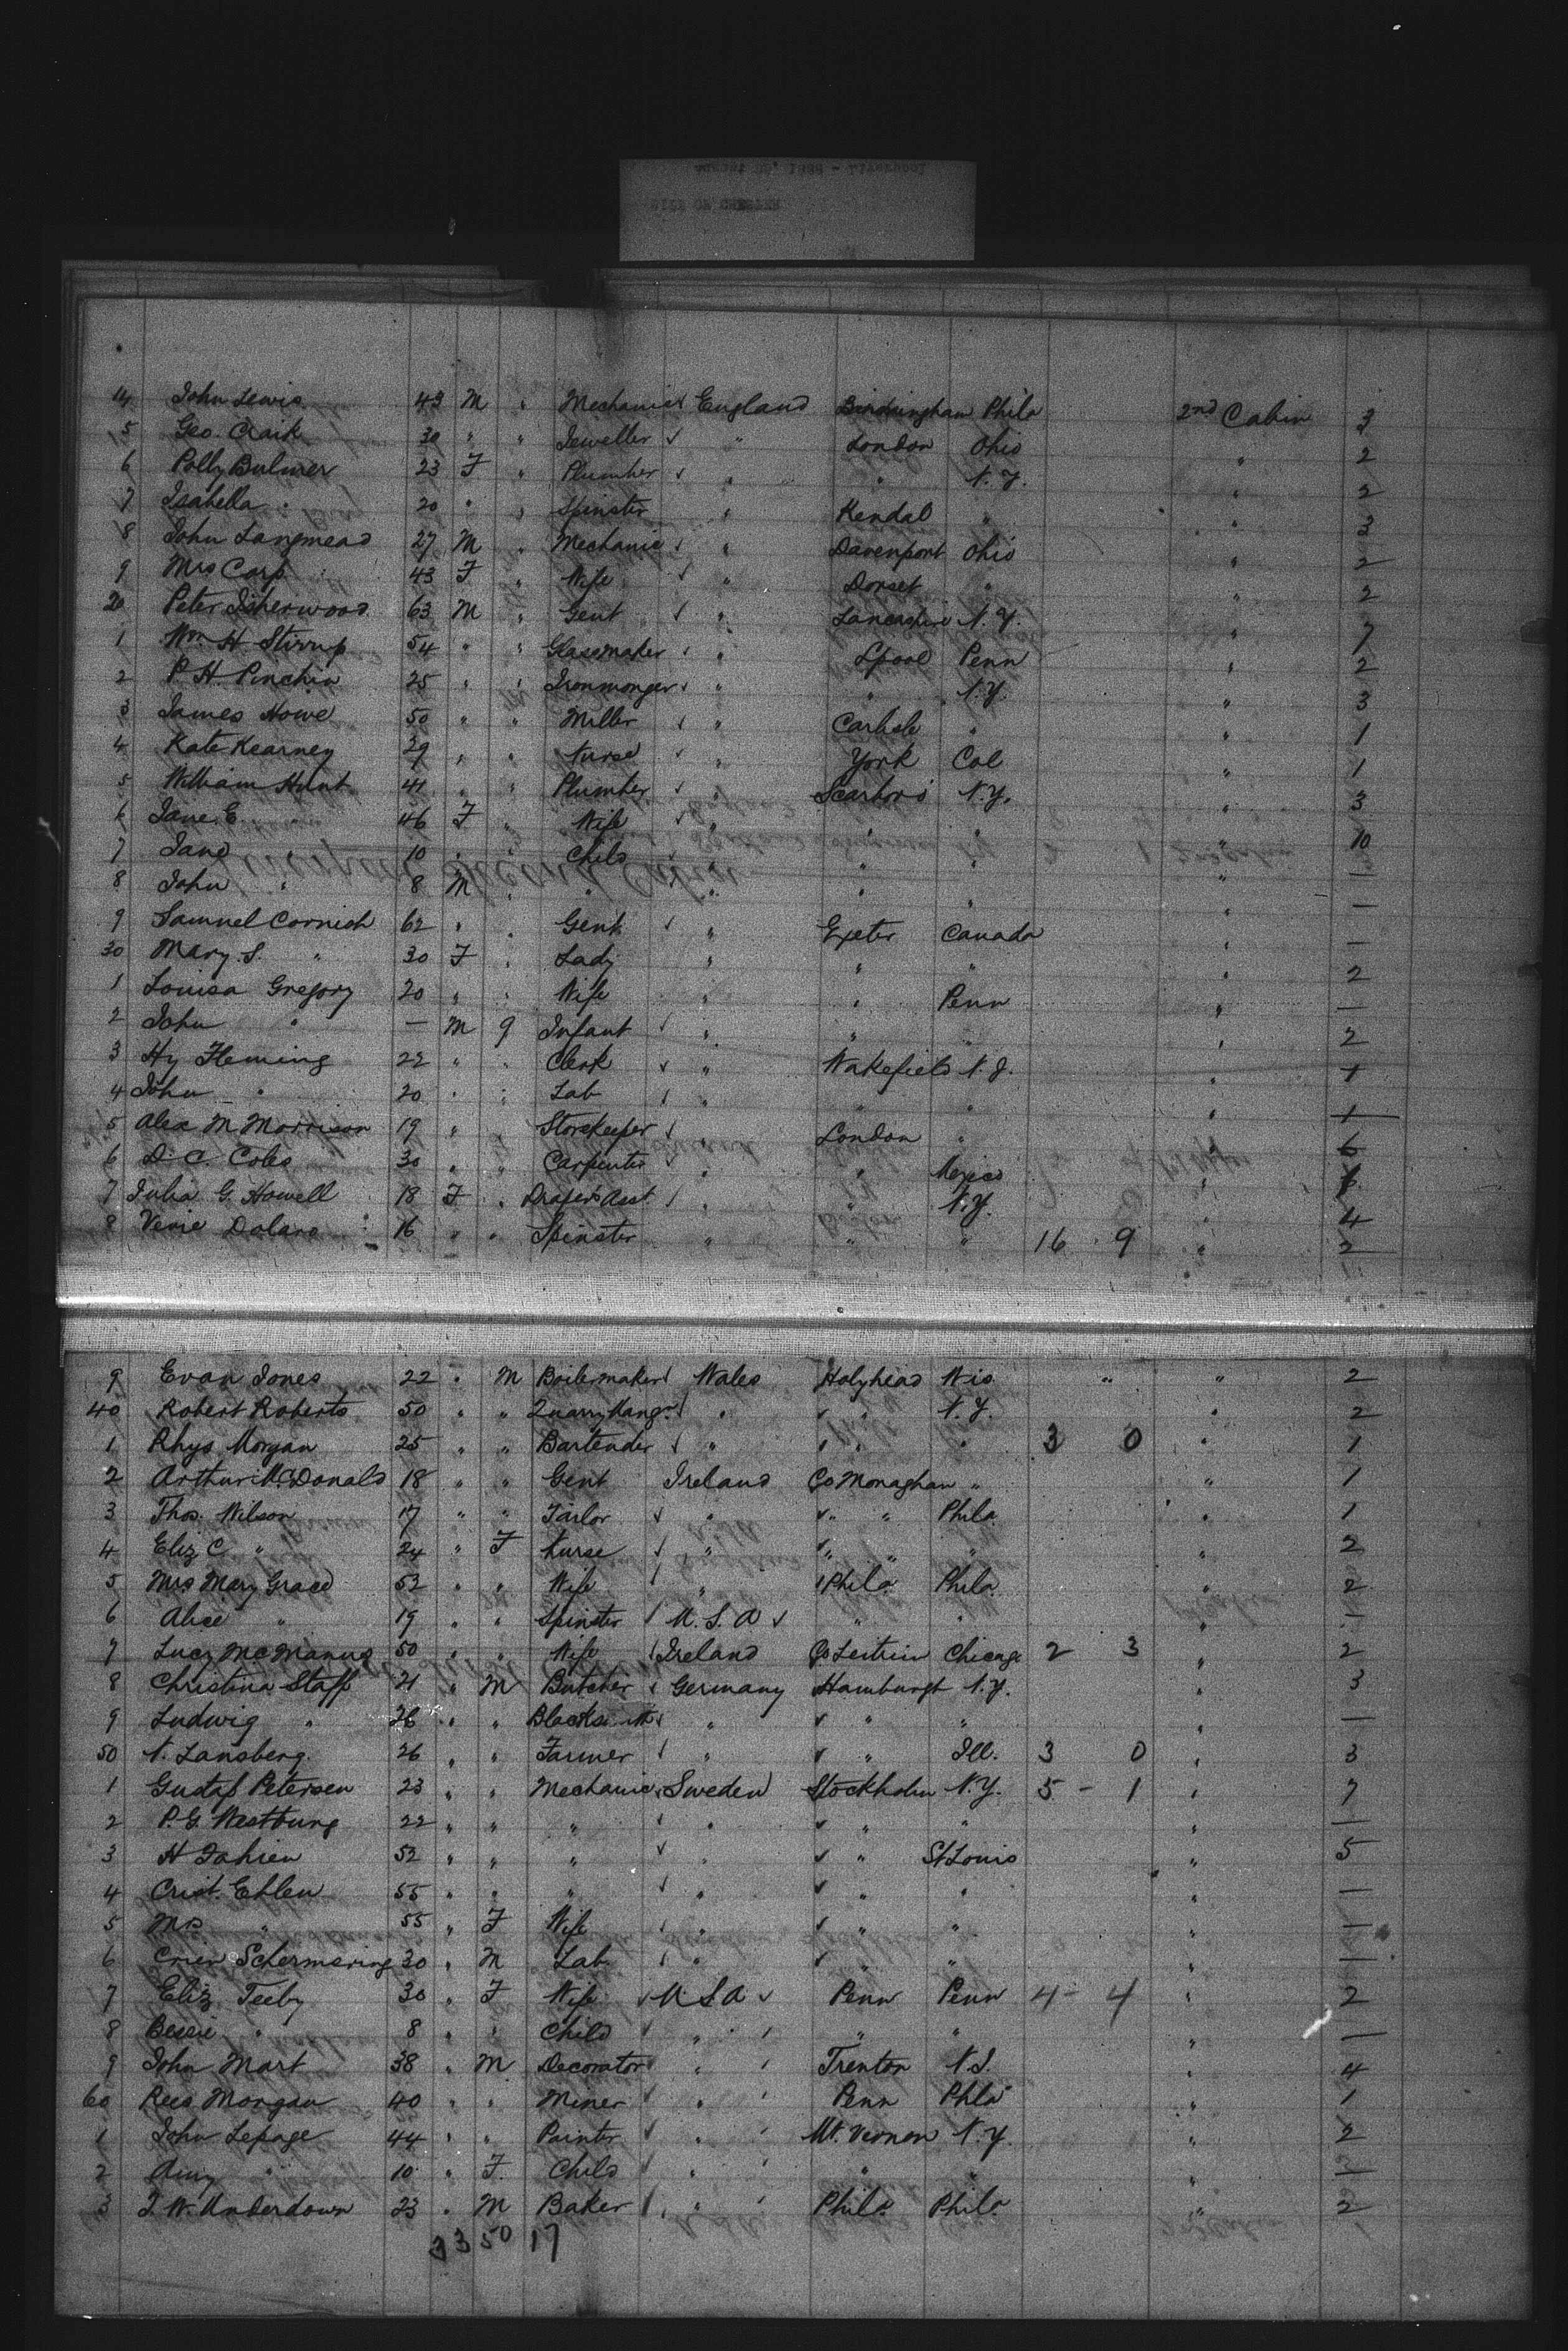 14 John Lewis 43 M " Mechanic England Birmingham Phila 2nd Cabin 3
5 Geo. Craik 30 " " Jeweller " London Ohio " 2
6 Polly Bulmer 23 F " Plumber " " N.Y. " 2
7 Isabella " 20 " " Spinster " Kendal " " 3
8 John Langmead 27 M " Mechanic " Davenport Ohio " 2
9 Mrs Carp 43 F " Wife " Dorset " " 2
20 Peter Isherwood 63 M " Gent " Lancashire N.Y. " 7
1 Wm. H Stirrup 54 " " Glassmaker " Lpool Penn " 2
2 P. H. Pinchin 25 " " Ironmonger " " N.Y. " 3
3 James Howe 50 " " Miller " Carlisle " " 1
4 Kate Kearney 29 " " Nurse " York Cal " 1
5 William Hunt 41 " " Plumber " Scarboro' N.Y. " 3
6 Jane E. " 46 F " Wife " " " " 10
7 Jane " 10 " " Child " " " " —
8 John " 8 M " " " " " " —
9 Samuel Cornish 62 " " Gent " Exeter Canada " —
30 Mary S. " 30 F " Lady " " " " 2
1 Louisa Gregory 20 " " Wife " " Penn " —
2 John " — M 9 Infant " " " " 2
3 Hy Fleming 22 " " Clerk " Wakefield N.J. " 1
4 John " 20 " " Lab " " " " 1
5 Alex M Morrison 19 " " Storekeeper London " " 6
6 D. C. Coles 30 " " Carpenter " " Mexico "
7 Julia G. Howell 18 F " Drapers Asst. " N.Y. " 4
8 Venie Dolaro 16 " " Spinster " " " 16 9 " 2
9 Evan Jones 22 " M Boilermaker Wales Holyhead Wis " " 2
40 Robert Roberts 50 " " Quarry Mangr. " " N.Y. " 2
1 Rhys Morgan 25 " " Bartender " " " 3 0 " 1
2 Arthur McDonald 18 " " Gent Ireland Co Monaghan " " 1
3 Thos. Wilson 17 " " Tailor " " " Phila " 1
4 Eliz C " 24 " F Nurse " " " " " 2
5 Mrs Mary Grace 52 " " Wife " Phila Phila " 2
6 Alice " 19 " " Spinster U.S.A " " " —
7 Lucy McManus 50 " " Wife Ireland Co Leitrim Chicago 2 3 " 2
8 Christina Staff 21 " M Butcher Germany Hamburgh N.Y. " 3
9 Ludwig " 26 " " Blacksmith " " " " —
50 N. Lansberg 26 " " Farmer " " Ill. 3 0 " 3
1 Gustaf Petersen 23 " " Mechanic Sweden Stockholm N.Y. 5 - 1 " 7
2 P. G. Westburg 22 " " " " " " " —
3 H Fahien 52 " " " " " St Louis " 5
4 Crist. Ehlen 55 " " " " " " " —
5 Mrs " 55 " F Wife " " " " —
6 Schermering 30 " M Lab " " " " —
7 Eliz Teeby 30 " F Wife U S A Penn Penn 4 - 4 " 2
8 Bessie " 8 " " Child " " " " —
9 John Mart 38 " M Decorator " Trenton N.J. " 4
60 Rees Morgan 40 " " Miner " Penn Phla " 1
1 John Lepage 44 " " Painter " Mt. Vernon N.Y. " 2
2 Amy " 10 " F. Child " " " " —
3 J. W. Underdown 23 " M Baker " Phila Phila " 2
33 50 17